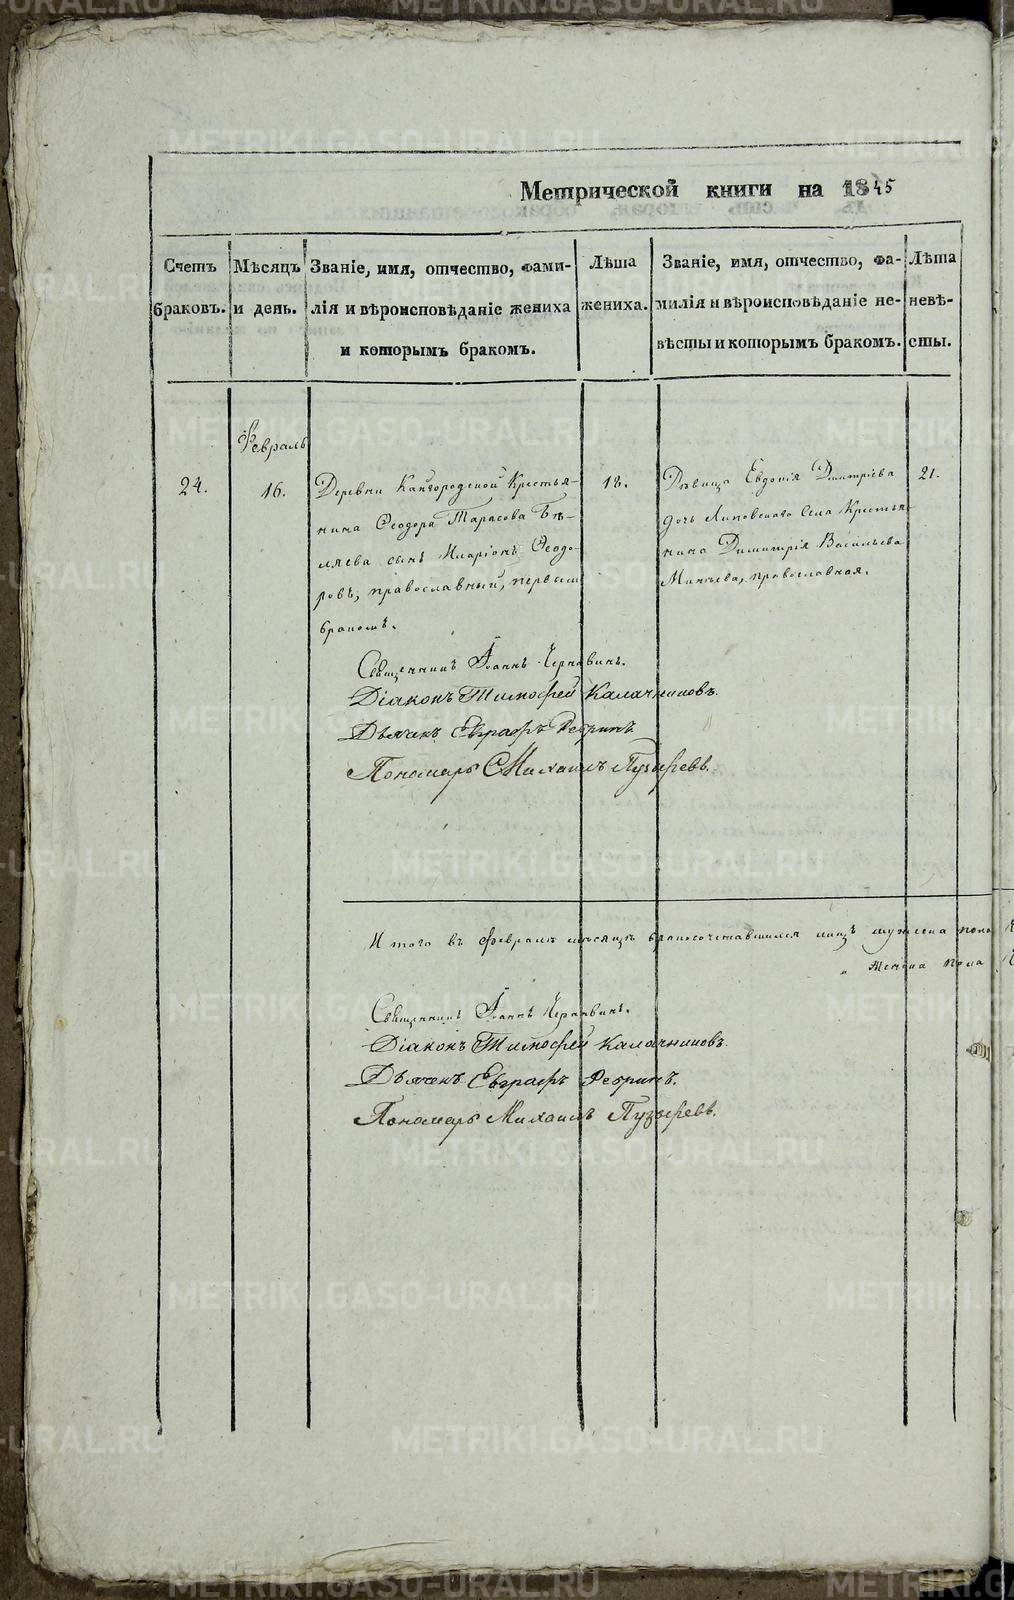 Метрической книги на 1845
Счетъ браковъ.
Мѣсяцъ и день.
Званіе, имя, отчество, фами-
лія и вѣроисповѣданіе жениха
и которымъ бракомъ.
Лѣта жениха.
Званіе, имя, отчество, фа-
милія и вѣроисповѣданіе не-
вѣсты и которымъ бракомъ.
Лѣта невѣ-
сты.
Февраль
24.
16.
Деревни Кайгородской Крестья-
нина Ѳеодора Тарасова Бѣ-
ляева сынъ Иларіонъ Ѳеодо-
ровъ, православный, первым
бракомъ.
18.
Дѣвица Евдокія Димитріева
дочь Липовскаго села Крестья-
нина Димитрія Васильева
Минѣева, православная.
21.
Священникъ Іоаннъ Чернавинъ.
Діаконъ Тимофей Калачниковъ.
Дьячекъ Евграфъ Ребринъ.
Пономарь Михаилъ Пузыревъ.
Итого въ Февралѣ мѣсяцѣ бракосочетавшихся лицъ мужеска пола
„ Женска пола
Священникъ Іоаннъ Чернавинъ.
Діаконъ Тимофей Калачниковъ.
Дьячекъ Евграфъ Ребринъ.
Пономарь Михаилъ Пузыревъ.
METRIKI.GASO-URAL.RU